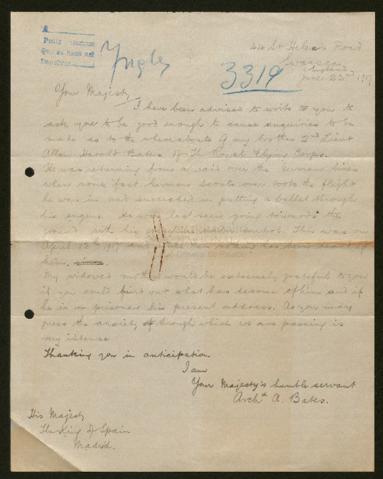 Ingles
3319
24 St Helen's Road
Swansea
England
June 23rd 1917
Your Majesty
I have been advised to write to you to
ask you to be good enough to cause enquiries to be
made as to the whereabouts of my brother 2nd Lieut
Allan Harold Bates of The Royal Flying Corps.
He was returning from a raid over the German lines
when some fast German Scouts over took the flight
he was in and succeeded in putting a bullet through
his engine. He was last seen going towards the
ground with his under control. This was on
April 13th 1917 and
him.
My widowed mother would be extremely grateful to you
if you could find out what has become of him and if
he is a prisoner his present address. As you may
guess the anxiety through which we are passing is
very intense
Thanking you in anticipation.
I am
Your Majesty's humble servant
Archd A. Bates.
His Majesty
The King of Spain
Madrid.